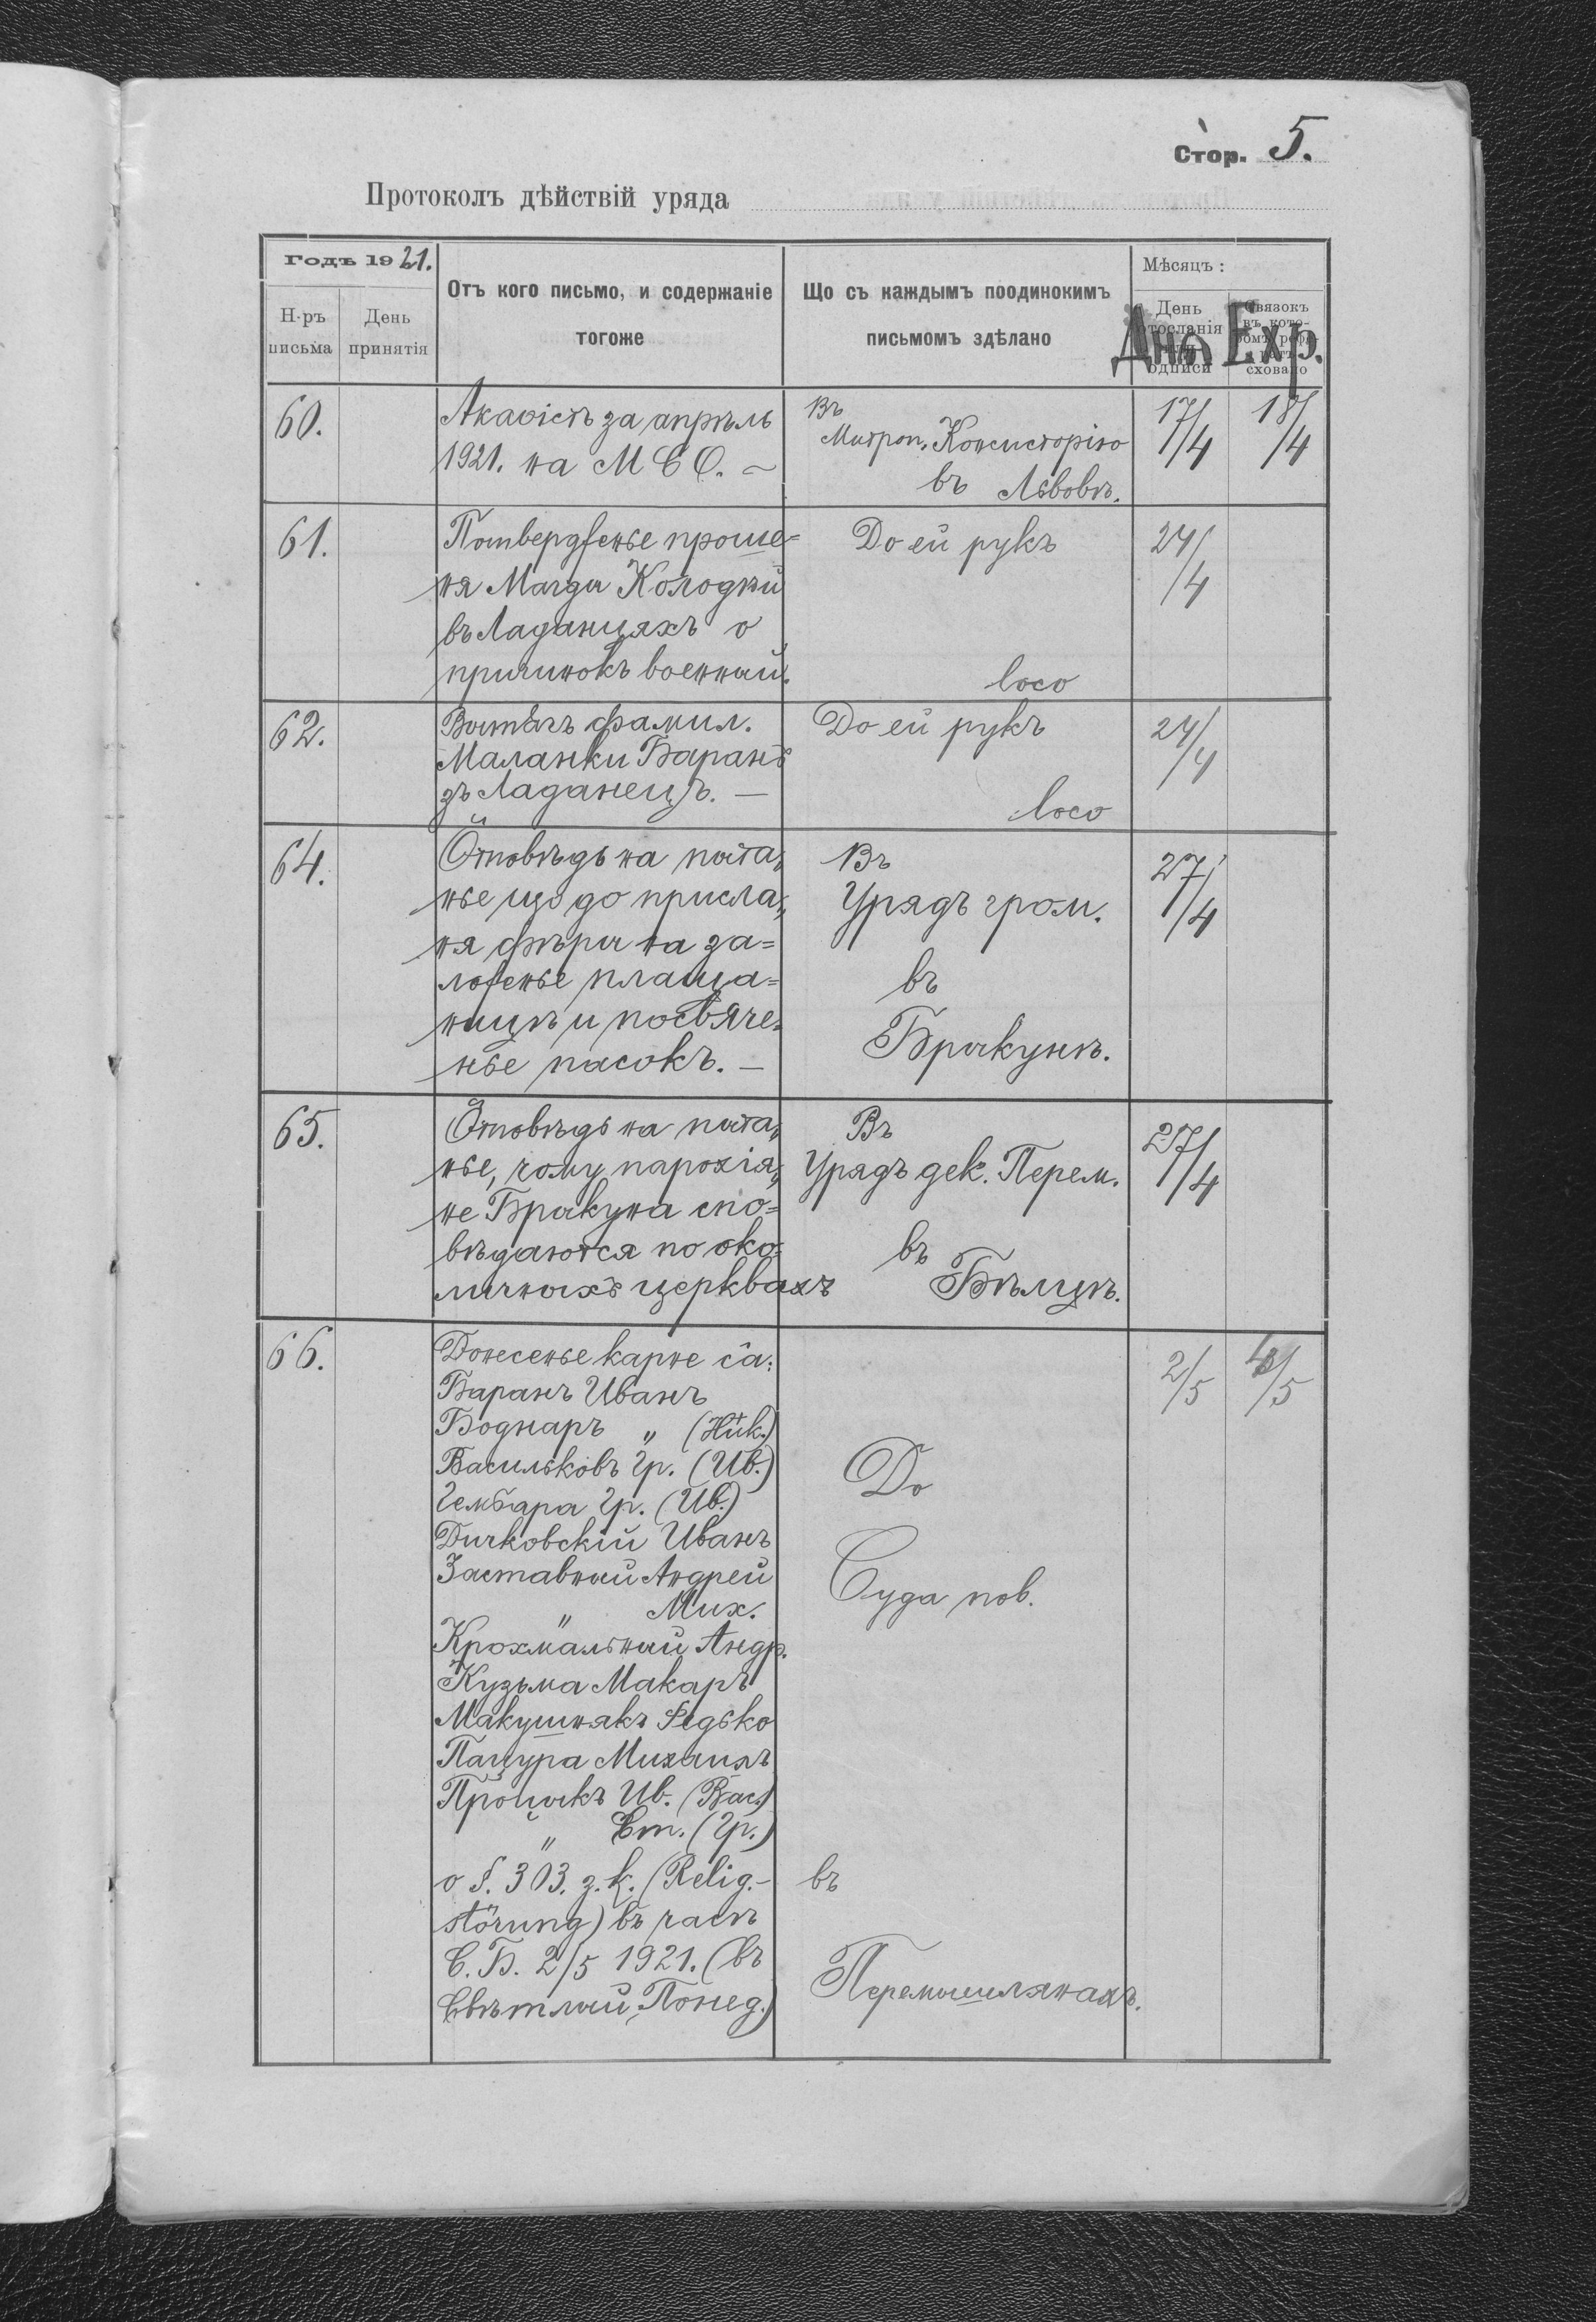 Стор. 5.
Протоколъ дѣйствій уряда
Годъ 1921.
Н-ръ письма
День принятія
Отъ кого письмо, и содержаніе тогоже
Що съ каждымъ поодинокимъ письмомъ здѣлано
Мѣсяцъ:
День
Связокъ
Дня Exp.
60.
Акаѳістъ за апрѣль
1921. на М Є О. ~
Въ
Митроп. Консисторію
въ Львовѣ.
17/4
18/4
61.
Потвердженье проше=
ня Магди Колодѣй
въ Ладанцяхъ о
причинокъ военный.
До ей рукъ
loco
24/4
62.
Вытягъ фамил.
Маланки Баранъ
зъ Ладанецъ. —
До ей рукъ
loco
24/4
64.
Отповѣдь на пыта„
нье що до присла„
ня фѣры на за=
ложенье плаща=
ницѣ и посвяче„
нье пасокъ. —
Въ
Урядъ гром.
въ
Брыкунѣ.
27/4
65.
Отповѣдь на пыта„
нье, чому парохія„
не Брыкуна спо=
вѣдаются по око„
личныхъ церквахъ
Въ
Урядъ дек. Перем.
въ
Бѣлцѣ.
27/4
66.
Донесенье карне са:
Баранъ Иванъ
Боднаръ „ (Ник.)
Васильковъ Гр. (Ив.)
Гембара Гр. (Ив.)
Дичковскій Иванъ
Заставный Андрей
„ Мих.
Крохмальный Андр.
Кузьма Макаръ
Макушнякъ Федько
Пацура Михаилъ
Процыкъ Ив. (Вас.)
„ Ст. (Гр.)
о §. 303. з. к. (Relig.-
störung) въ часѣ
С. Б. 2/5 1921. (въ
Свѣтлый Понед.)
До
Суда пов.
въ
Перемышлянахъ.
2/5
4/5